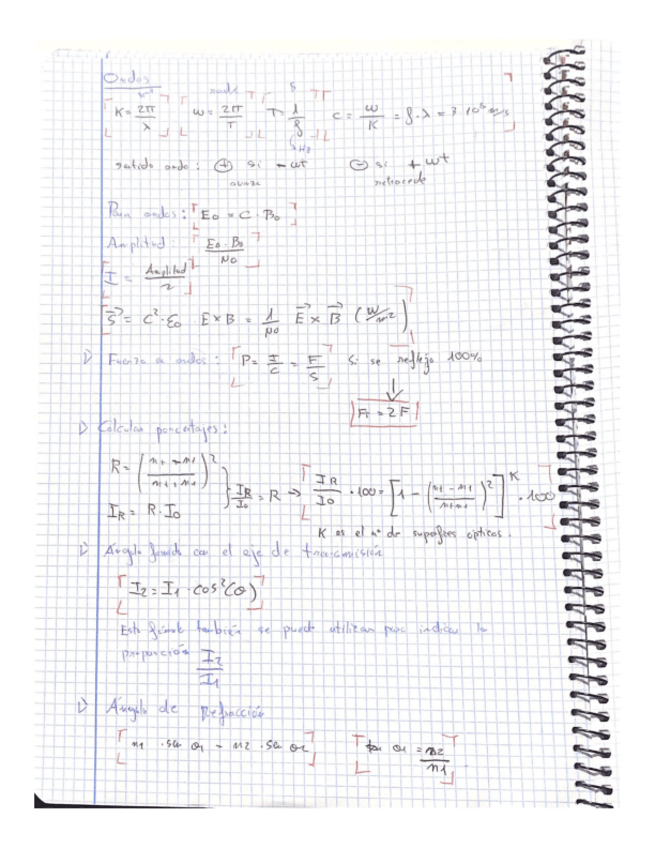 Ondas
m⁻¹ rad/s s
K = 2π/λ ω = 2π/T T = 1/f C = ω/K = f · λ = 3 10⁸ m/s
Hz
sentido onda : ⊕ si - ωt ⊖ si + ωt
avanza retrocede
Para ondas : E₀ = C · B₀
Amplitud : E₀ · B₀/μ₀
I = Amplitud/2
S⃗ = C² · ε₀ · E × B = 1/μ₀ E⃗ × B⃗ (W/m²)
Fuerza a ondas : P = I/C = F/S Si se refleja 100%
↓
Fr = 2F
Calcular porcentajes :
R = ((n₁ - n₁)/(n₁ + n₁))²
I_R = R · I₀ } I_R/I₀ = R ⇒ I_R/I₀ · 100 = [1 - ((n₁ - n₁)/(n₁ + n₁))²]^K · 100
K es el nº de superfies opticas.
Ángulo formado con el eje de transmisión
I₂ = I₁ · cos²(θ)
Esta fórmula también se puede utilizar para indicar la
proporción I₂/I₁
Ángulo de Refracción
n₁ · sen θ₁ = n₂ · sen θ₂ tan θ₁ = n₂/n₁